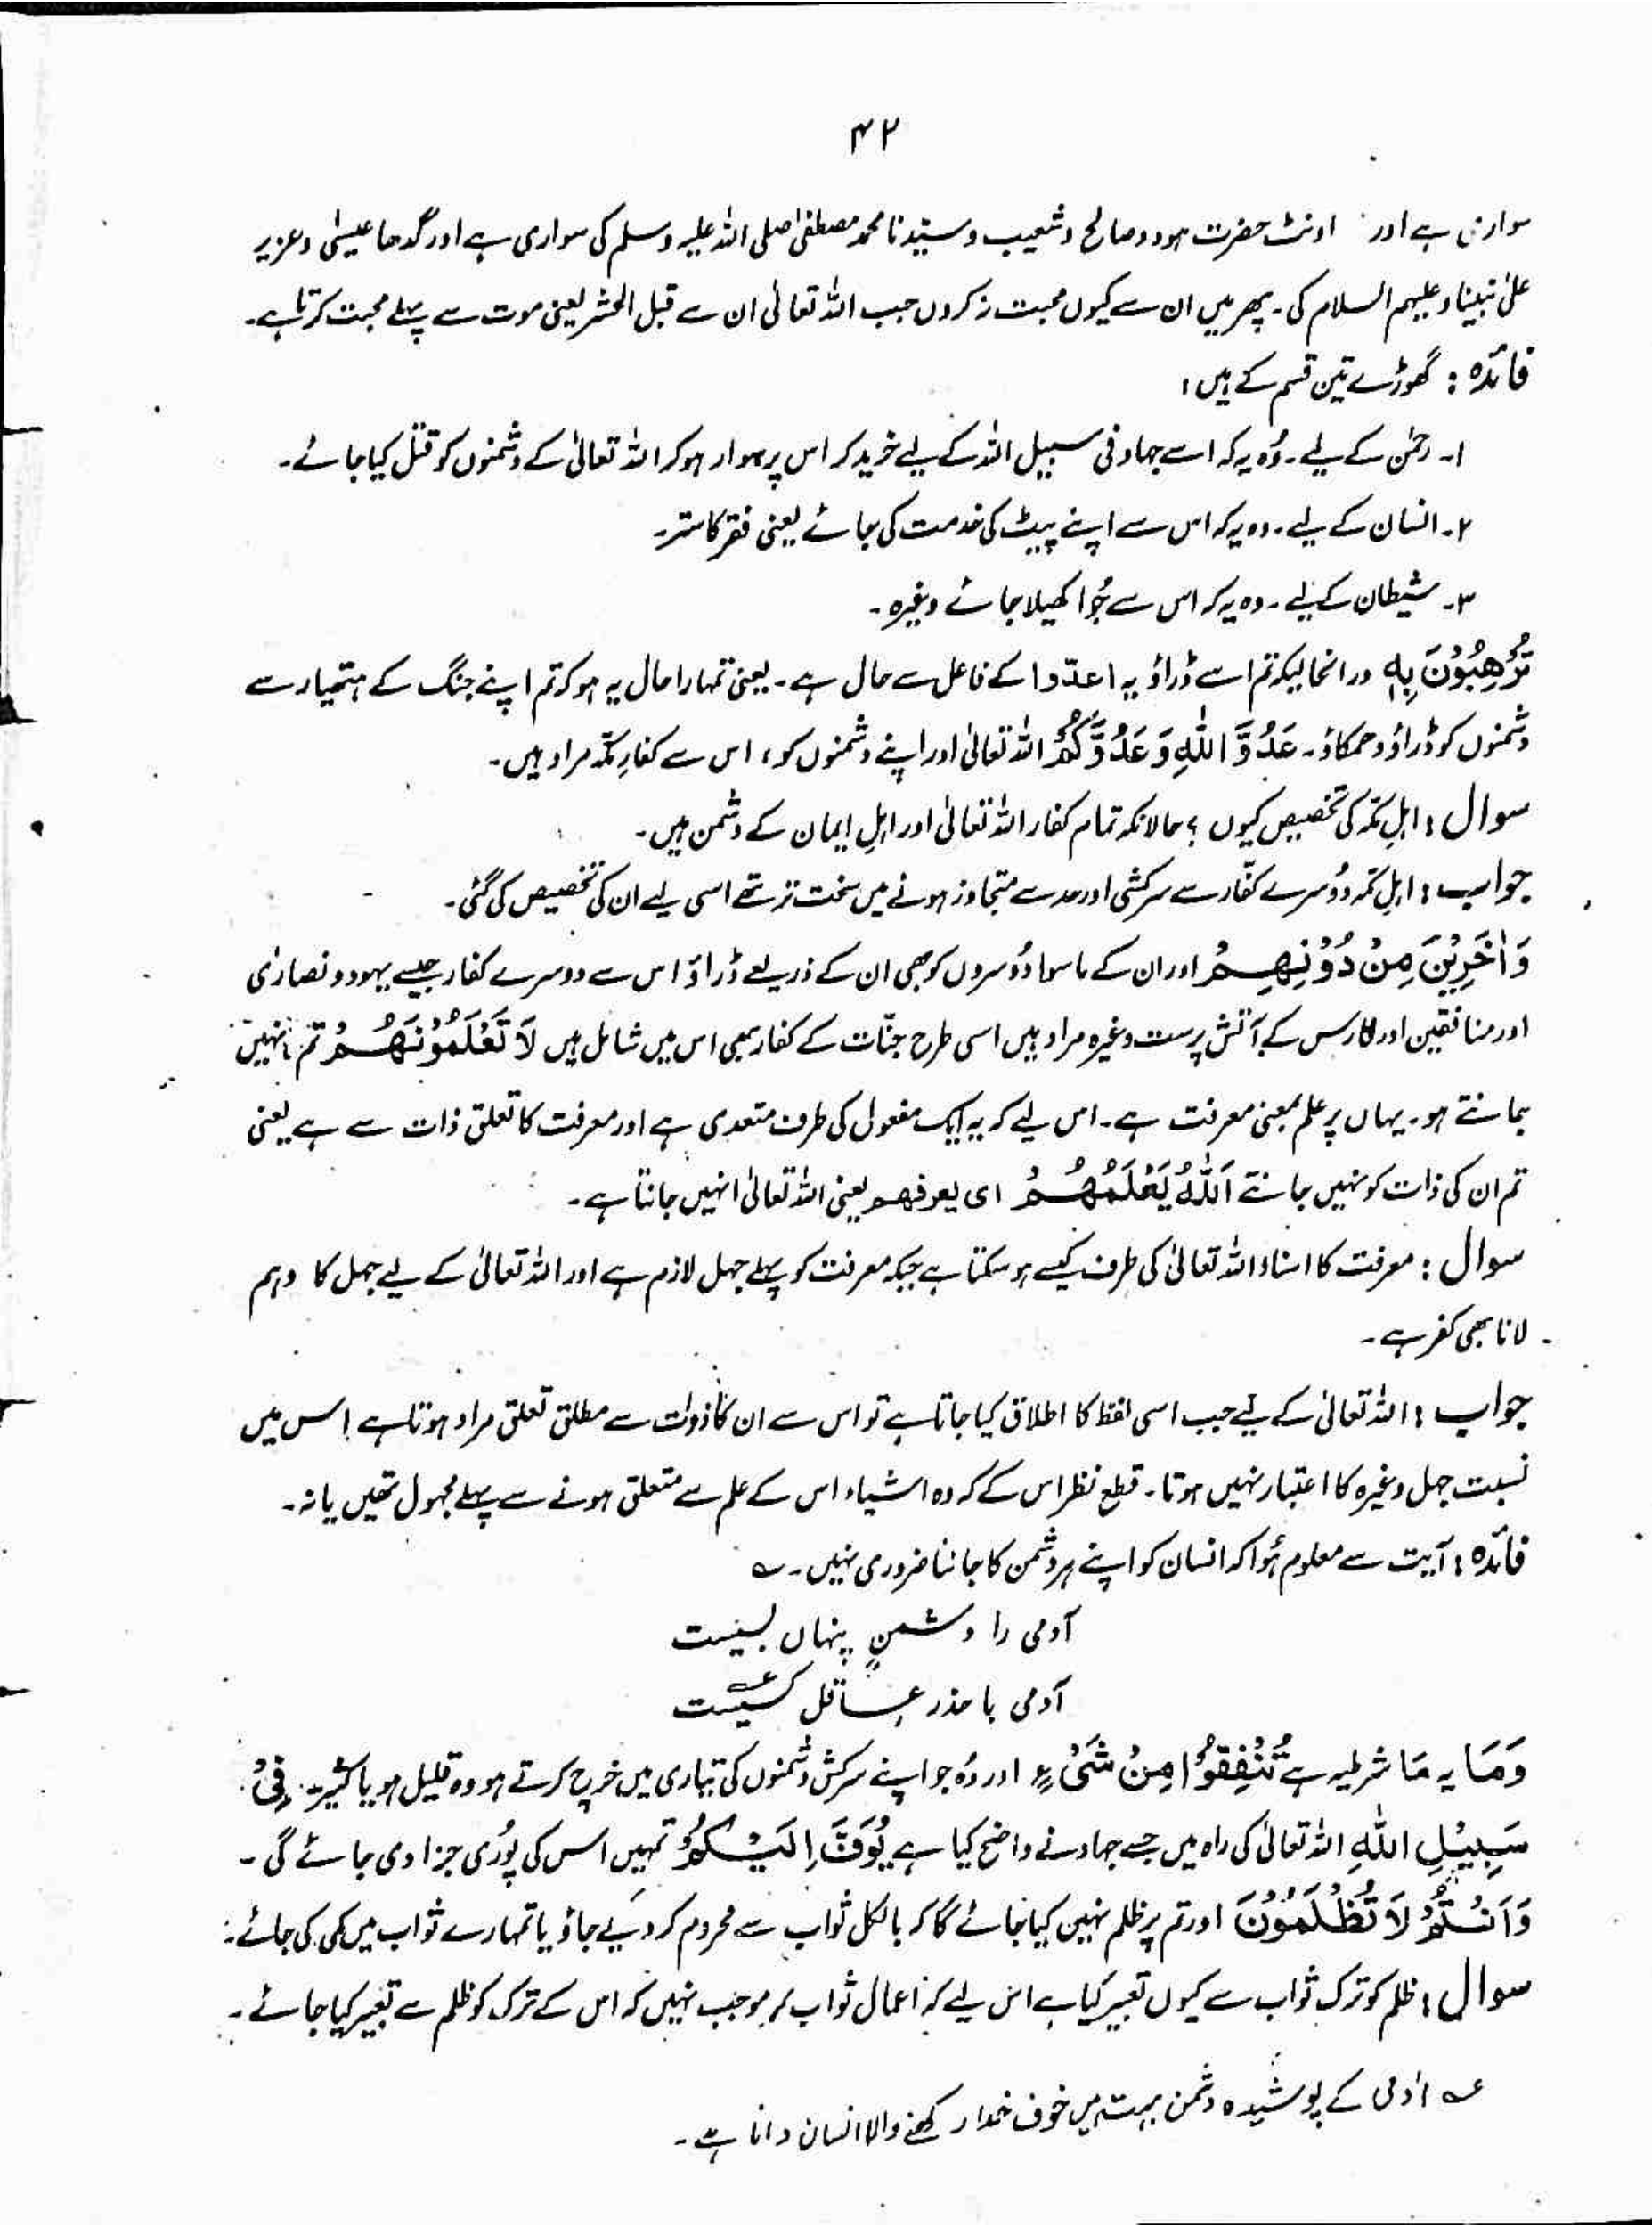 ۴۲
سواری ہے اور اونٹ حضرت ہود و صالح و شعیب و سیّدنا محمد مصطفیٰ صلی اللہ علیہ وسلم کی سواری ہے اور گدھا عیسیٰ و عزیر
علیٰ نبینا و علیہم السلام کی۔ پھر میں ان سے کیوں محبت نہ کروں جب اللہ تعالیٰ ان سے قبل الحشر یعنی موت سے پہلے محبت کرتا ہے۔
فائدہ : گھوڑے تین قسم کے ہیں :
۱۔ رحمٰن کے لیے۔ وُہ یہ کہ اسے جہاد فی سبیل اللہ کے لیے خرید کر اس پر سوار ہو کر اللہ تعالیٰ کے دشمنوں کو قتل کیا جائے۔
۲۔ انسان کے لیے۔ وہ یہ کہ اس سے اپنے پیٹ کی خدمت کی جائے یعنی فقر کا ستر۔
۳۔ شیطان کے لیے۔ وہ یہ کہ اس سے جُوا کھیلا جائے وغیرہ۔
تُرْهِبُوْنَ بِهٖ درانحالیکہ تم اسے ڈراؤ یہ اعدّوا کے فاعل سے حال ہے۔ یعنی تمہارا حال یہ ہو کہ تم اپنے جنگ کے ہتھیار سے
دشمنوں کو ڈراؤ دھمکاؤ۔ عَدُوَّ اللّٰهِ وَ عَدُوَّكُمْ اللہ تعالیٰ اور اپنے دشمنوں کو، اس سے کفارِ مکّہ مراد ہیں۔
سوال : اہلِ مکّہ کی تخصیص کیوں ؟ حالانکہ تمام کفار اللہ تعالیٰ اور اہلِ ایمان کے دشمن ہیں۔
جواب : اہلِ مکّہ دُوسرے کفّار سے سرکشی اور حد سے متجاوز ہونے میں سخت تر تھے اسی لیے ان کی تخصیص کی گئی۔
وَاٰخَرِيْنَ مِنْ دُوْنِهِمْ اور ان کے ماسوا دُوسروں کو بھی ان کے ذریعے ڈراؤ اس سے دوسرے کفار جیسے یہود و نصاریٰ
اور منافقین اور فارس کے آتش پرست وغیرہ مراد ہیں اسی طرح جنّات کے کفار بھی اس میں شامل ہیں لَا تَعْلَمُوْنَهُمْ تم انہیں نہیں
جانتے ہو۔ یہاں پر علم بمعنی معرفت ہے۔ اس لیے کہ یہ ایک مفعول کی طرف متعدی ہے اور معرفت کا تعلق ذات سے ہے یعنی
تم ان کی ذات کو نہیں جانتے اَللّٰهُ يَعْلَمُهُمْ ای یعرفهم یعنی اللہ تعالیٰ انہیں جانتا ہے۔
سوال : معرفت کا اسناد اللہ تعالیٰ کی طرف کیسے ہو سکتا ہے جبکہ معرفت کو پہلے جہل لازم ہے اور اللہ تعالیٰ کے لیے جہل کا وہم
لانا بھی کفر ہے۔
جواب : اللہ تعالیٰ کے لیے جب اسی لفظ کا اطلاق کیا جاتا ہے تو اس سے ان کا ذوات سے مطلق تعلق مراد ہوتا ہے اس میں
نسبت جہل وغیرہ کا اعتبار نہیں ہوتا۔ قطع نظر اس کے کہ وہ اشیاء اس کے علم سے متعلق ہونے سے پہلے مجہول تھیں یا نہ۔
فائدہ : آیت سے معلوم ہُوا کہ انسان کو اپنے ہر دشمن کا جاننا ضروری نہیں۔ ؎
آدمی را دشمنِ پنہاں بسیست
آدمی با حذر عاقل کسیست عہ
وَمَا یہ مَا شرطیہ ہے تُنْفِقُوْا مِنْ شَیْءٍ اور وُہ جو اپنے سرکش دشمنوں کی تیاری میں خرچ کرتے ہو وہ قلیل ہو یا کثیر۔ فِیْ
سَبِيْلِ اللّٰهِ اللہ تعالیٰ کی راہ میں جسے جہاد نے واضح کیا ہے يُوَفَّ اِلَيْكُمْ تمہیں اس کی پُوری جزا دی جائے گی۔
وَاَنْتُمْ لَا تُظْلَمُوْنَ اور تم پر ظلم نہیں کیا جائے گا کہ بالکل ثواب سے محروم کر دیے جاؤ یا تمہارے ثواب میں کمی کی جائے۔
سوال : ظلم کو ترک ثواب سے کیوں تعبیر کیا ہے اس لیے کہ اعمال ثواب کو موجب نہیں کہ اس کے ترک کو ظلم سے تعبیر کیا جائے۔
عہ آدمی کے پوشیدہ دشمن بہت ہیں خوف خدا رکھنے والا انسان دانا ہے۔